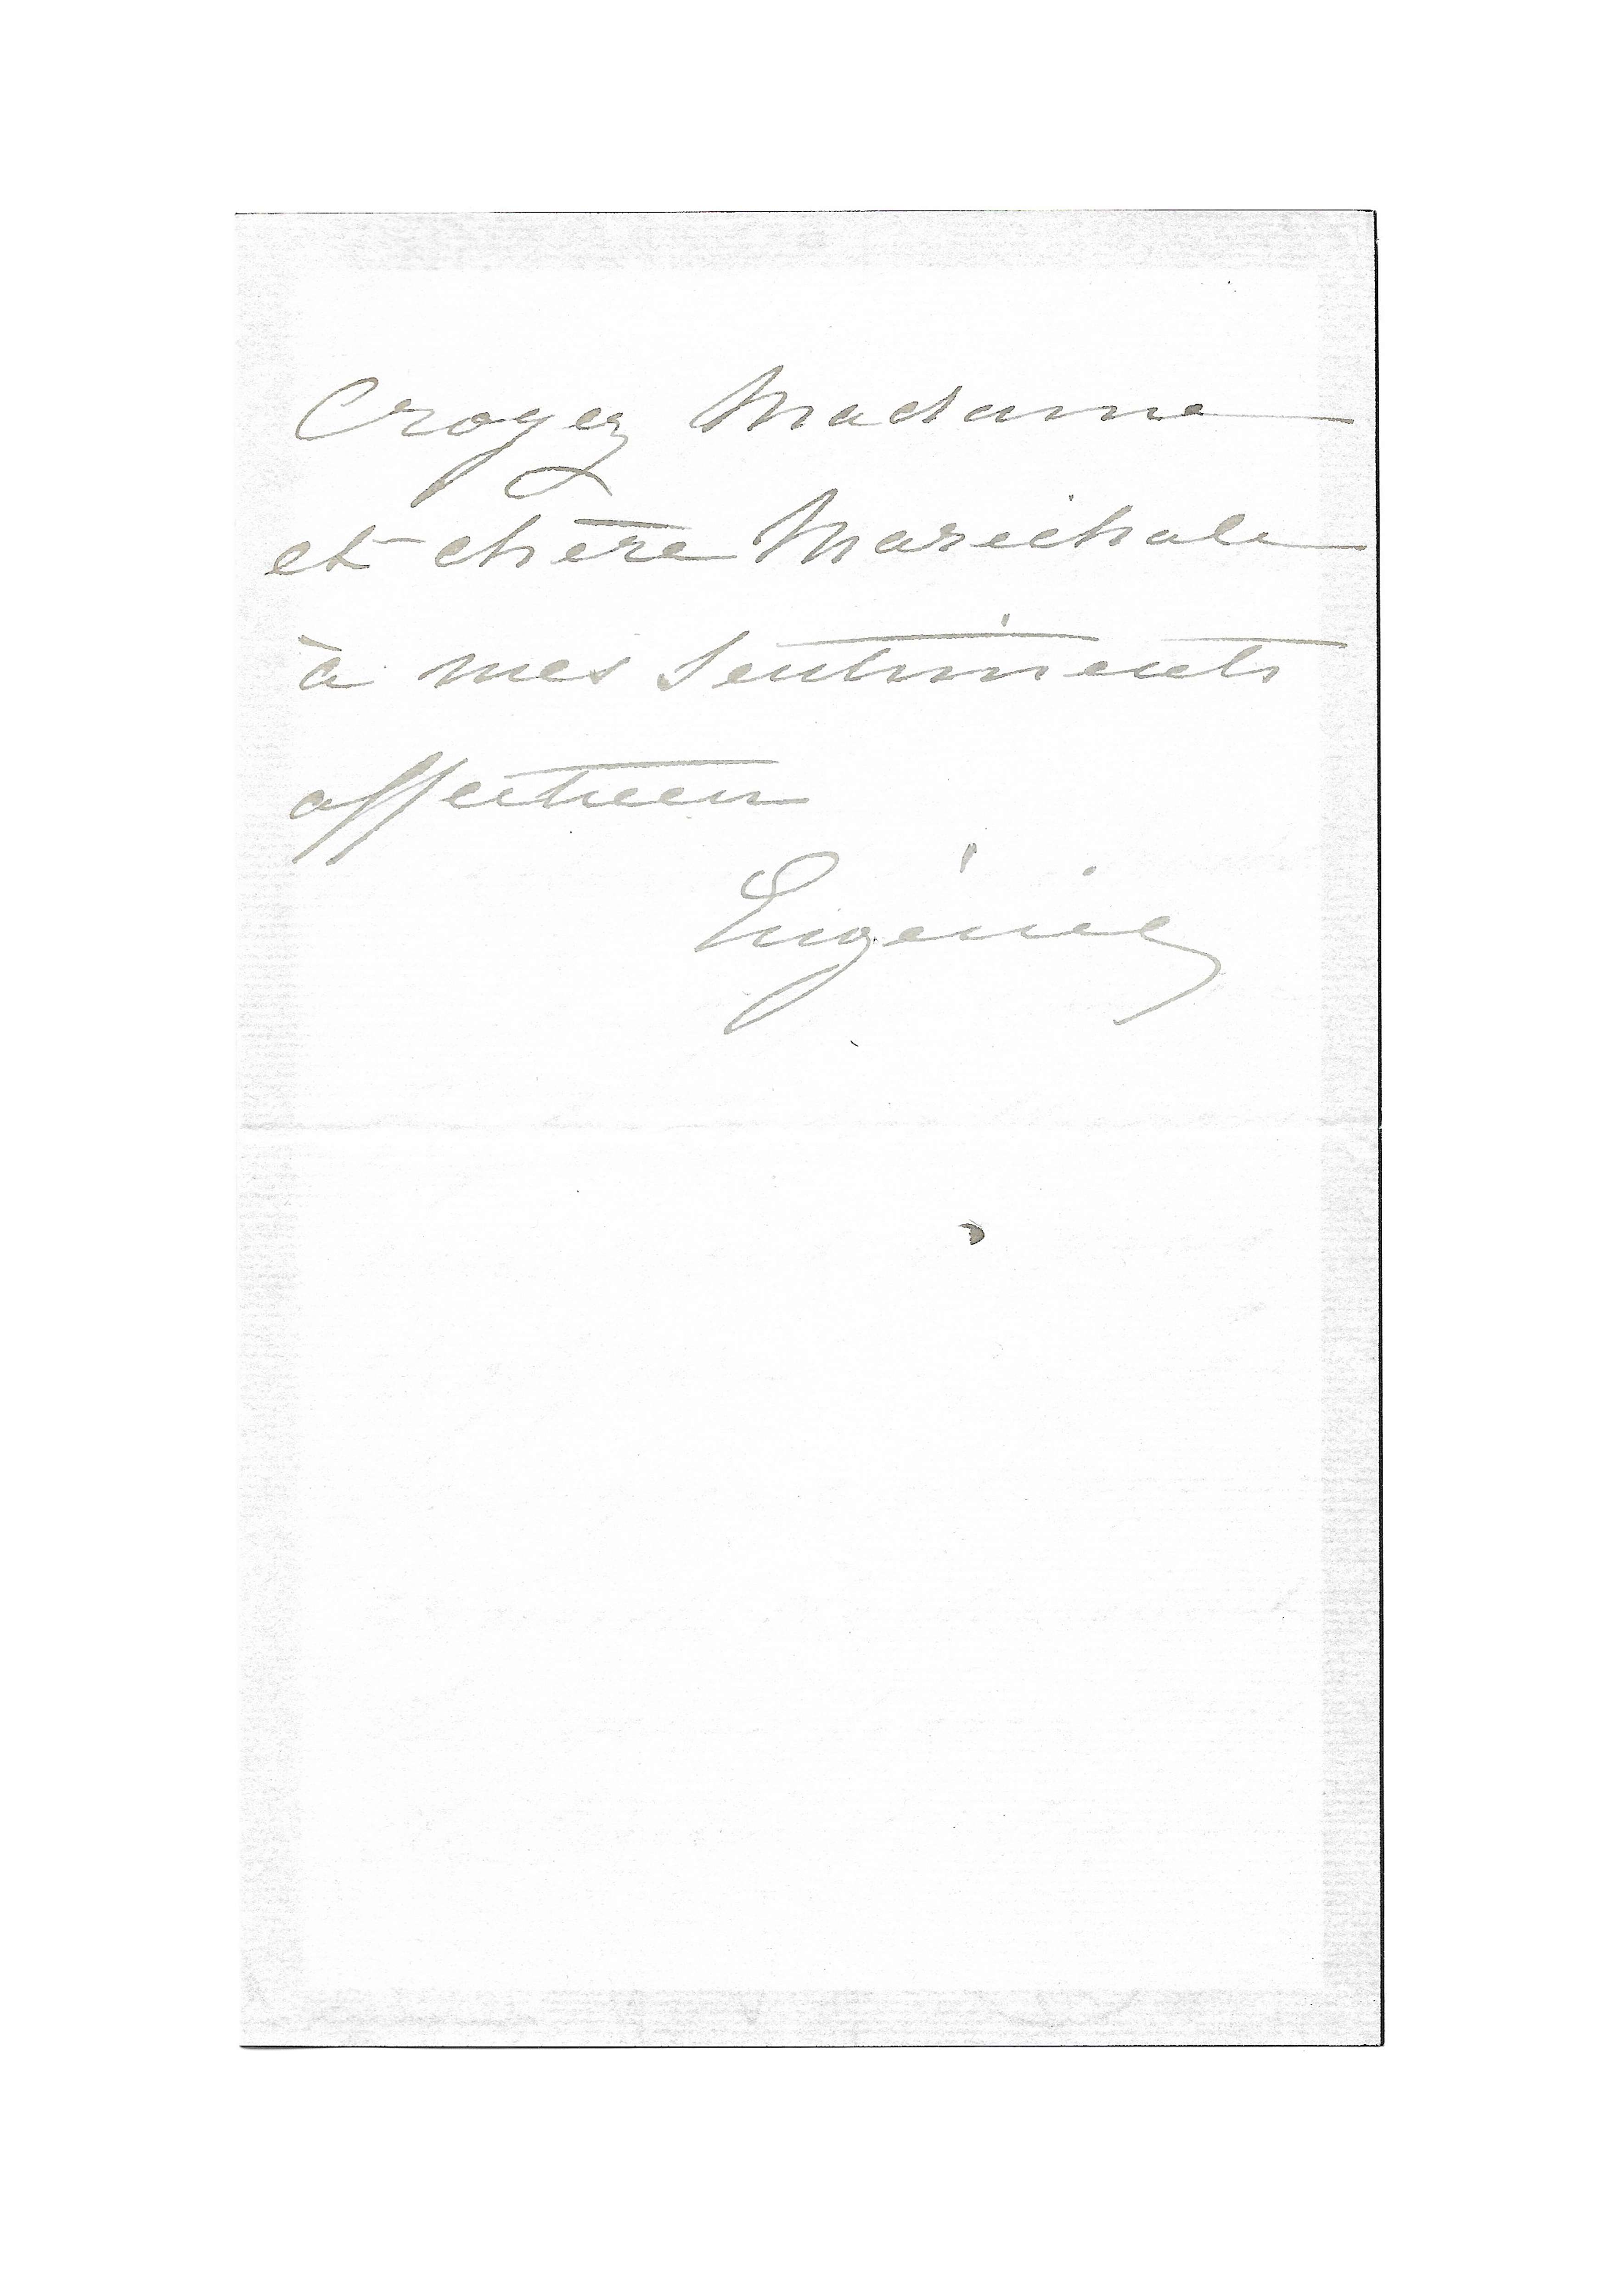 Croyez Madame
et chère Maréchale
à mes Sentiments
affectueux
Eugénie